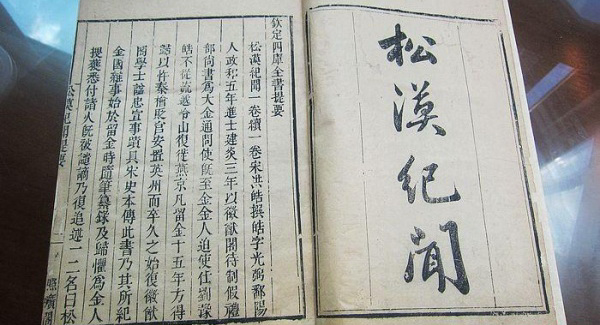 松漠紀聞
欽定四庫全書提要
松漠紀聞一卷續一卷宋洪皓撰皓字光弼鄱陽
人政和五年進士建炎三年以徽猷閣待制假禮
部尚書為大金通問使旣至金金人迫使仕劉豫
皓不從流遞冷山復徙燕京凡留金十五年方得
歸以忤秦檜貶官安置英州而卒久之始復徽猷
閣學士諡忠宣事蹟具宋史本傳此書乃其所紀
金國雜事始於留金時隨筆纂錄及歸懼為金人
搜獲悉付諸火旣被譴謫乃復追述一二名曰松
松漠紀聞提要
照曠閣